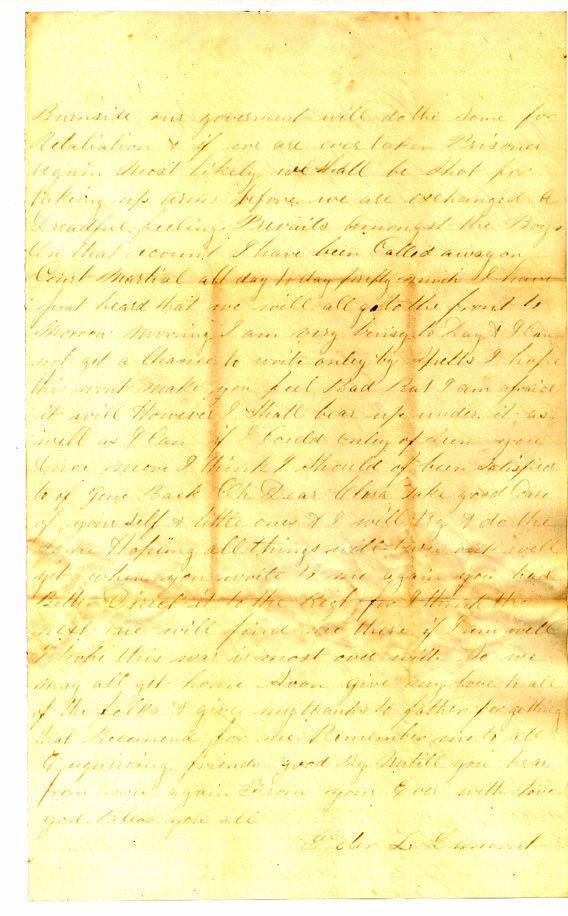 Burnside our goverment will do the same for
Retaliation & if we are ever taken Prisoned
again most likely we shall be shot for
taking up arms before we are exchanged a
Dreadful feeling Prevails amongst the Boys
On that account I have been Called away on
Court Martial all day to day I have
just heard that we will all go to the front to
Morrow Morning I am very buisy to Day & I Can
not get a chance to write onley by spells I hope
this wont make you feel Bad But I am afraid
it will However I shall bear up under it as
well as I Can if I Could onley of seen you
Once more I think I should of been satisfied
to of gone Back Oh Dear take good Care
of your self & little ones & I will try & do the
same Hopiing all things will turn out well
yet when you write to me again you had
Better Direct it to the Regt for I think the
next one will find me there if I am well
I hope this war is most over with so we
may all get home Soon give my love to all
of the folks & give my thanks to father for getting
that Recomend for me Remember me to all
Enquireing friends good By Untill you hear
from me again From your Ever with love
god Bless you all
L